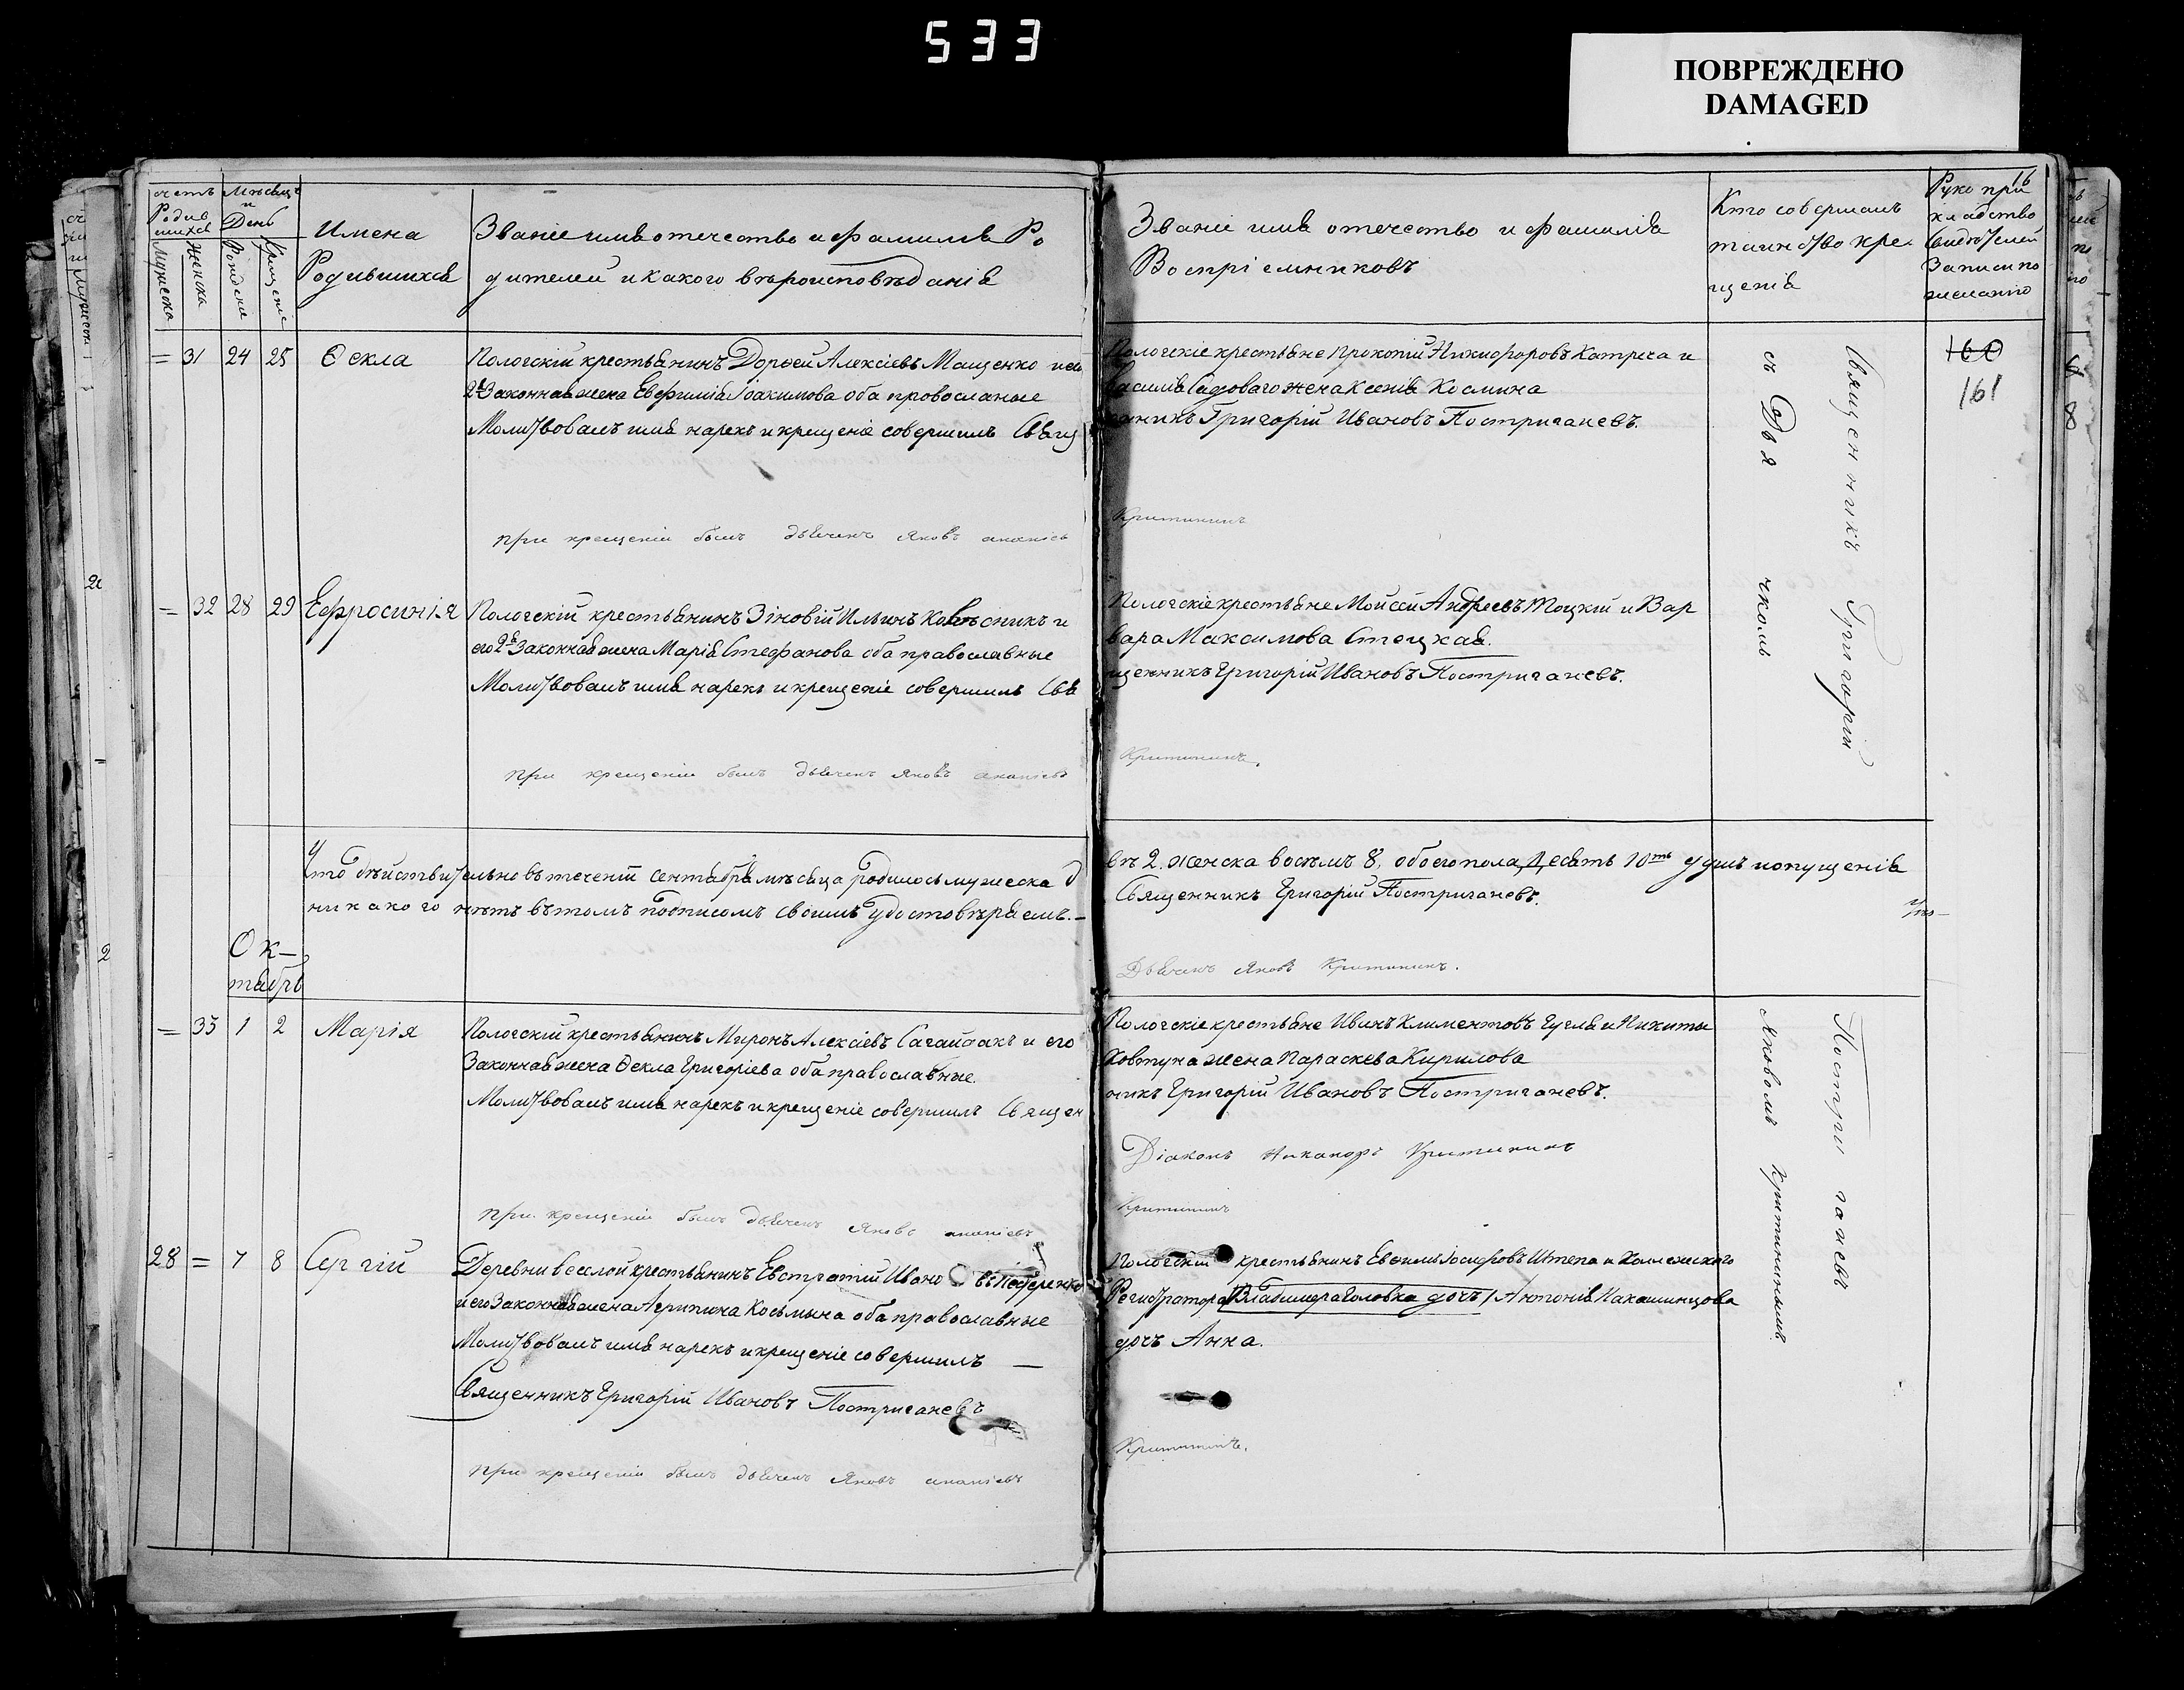 533
ПОВРЕЖДЕНО
DAMAGED
счетъ Родив шихся
Мужеска
Женска
Мѣсяцъ и День
Рожденія
Крещенія
Имена Родившихся
Званіе имя отечество и фамилія Ро
дителей и какого вѣроисповѣданія
Званіе имя отечество и фамилія
Воспріемниковъ
Кто совершалъ
таинство кре
щенія
Руко при
кладство
свидѣтелей
Записи по
желанію
16
= 31 24 25 Ѳекла
Пологскій крестьянинъ Дороѳей Алексіевъ Мащенко и его
2я Законная жена Евфимія Іоакимова оба провосланые
Молитвовалъ имя нарекъ и крещеніе совершилъ Свящ
при крещеніи былъ дьячекъ Яковъ ананіев
Пологскіе крестьяне Прокопій Никифоровъ Катрега и
Василія Садоваго жена Ксенія Космина
еникъ Григорій Ивановъ Постригачевъ.
Критининъ
160
161
= 32 28 29 Ефросинія
Пологскій крестьянинъ Зіновій Ильинъ Колѣсникъ и
его 2я Законная жена Марія Стефанова оба православные
Молитвовалъ имя нарекъ и крещеніе совершилъ Свя
при крещеніи былъ дьячекъ Яковъ ананіевъ
Пологскіе крестьяне Мойсей Андреевъ Тоцкій и Вар
вара Максимова Стецкая.
щенникъ Григорій Ивановъ Постригачевъ.
Критининъ.
Что дѣйствительно въ теченіи сентября мѣсяца родилось мужеска д
вѣ 2. женска восѣмъ 8. обоего пола десять 10ть душъ и опущенія
никакого нѣтъ въ томъ подписомъ своимъ удостовѣряемъ.—
Священникъ Григорій Постригачевъ.
Дьячекъ Яковъ Критининъ.
Ок-
тябрь
= 33 1 2 Марія
Пологскій крестьянинъ Миронъ Алексіевъ Сагайдакъ и его
Законная жена Ѳекла Григоріева оба православные.
Молитвовалъ имя нарекъ и крещеніе совершилъ Священ
при крещеніи былъ дьячекъ Яковъ ананіевъ
Пологскіе крестьяне Иванъ Климентовъ Гугля и Никиты
Ковтуна жена Параскева Кирилова
никъ Григорій Ивановъ Постригачевъ.
Діаконъ Никаноръ Критининъ
Критининъ
28 = 7 8 Сергій
Деревни Веселой крестьянинъ Евстратій Ивано въ
и его Законная жена Агрипина Косьмина оба православные
Молитвовалъ имя нарекъ и крещеніе совершилъ —
Священникъ Григорій Ивановъ Постригачевъ
при крещеніи былъ дьячекъ Яковъ ананіевъ
Пологскій крестьянинъ Евѳимъ Іосифовъ Штепа и Коллежского
Регистратора Владимера Головка дочъ / Антонія Какашинцова
дочъ Анна.
Критининъ.
Священникъ Григорій Постригачевъ
съ Дья чкомъ Яковомъ Критининымъ.